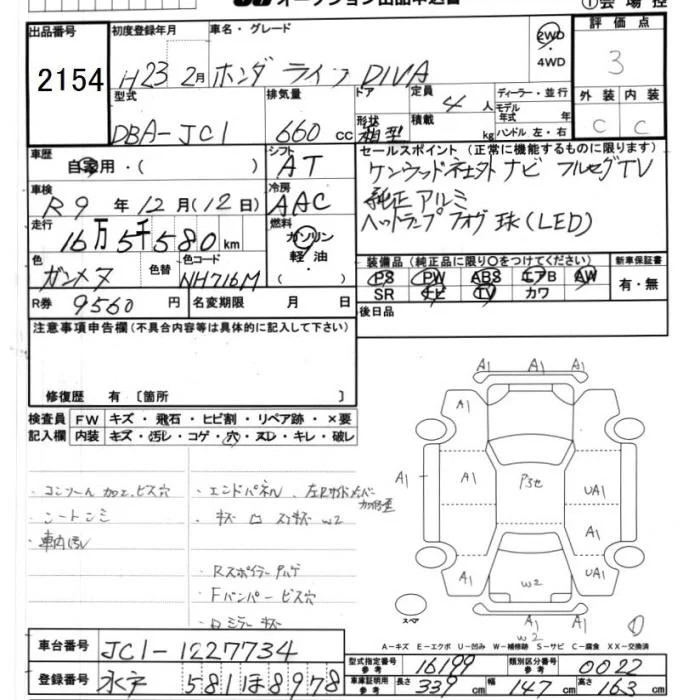 オークション出品申込書
①会場控
出品番号
2154
初度登録年月
H23 2月
車名・グレード
ホンダ ライフ DIVA
2WD
・
4WD
評価点
3
型式
DBA-JC1
排気量
660 cc
ドア
形状
箱型
定員
4 人
積載
kg
ディーラー・並行
モデル
年式 年
ハンドル 左・右
外装
内装
C
C
車歴
自家用・( )
シフト
AT
車検
R9年12月(12日)
冷房
AAC
走行
16万5千580km
燃料
ガソリン
・
軽油
・
( )
色
ガンメタ
色替
色コード
NH716M
R券
9560円
名変期限 月 日
セールスポイント(正常に機能するものに限ります)
ケンウッド社外ナビ フルセグTV
純正アルミ
ヘッドランプ フォグ球(LED)
装備品(純正品に限り○をつけてください)
PS PW ABS エアB AW
SR ナビ TV カワ
新車保証書
有・無
後日品
注意事項申告欄(不具合内容等は具体的に記入して下さい)
修復歴 有 〔箇所 〕
検査員
記入欄
FW キズ・飛石・ヒビ割・リペア跡・×要
内装 キズ・汚レ・コゲ・穴・スレ・キレ・破レ
・コンソール加工、ビス穴
・シートシミ
・車内汚レ
・エンドパネル、左Rサイドメンバー
・Rスポイラー
・Fバンパービス穴
・ロミラーキズ
A1
A1
A1
A1
A1
A1
A1
A1
UA1
A1
A1
UA1
W2
W2
スペア
①
A-キズ E-エクボ U-凹み W-補修跡 S-サビ C-腐食 XX-交換済
車台番号
JC1-1227734
登録番号
水戸 581 ほ 8978
型式指定番号
参考
16199
類別区分番号
参考
0022
車庫証明用
参考
長さ 339cm
幅 147cm
高さ 163cm